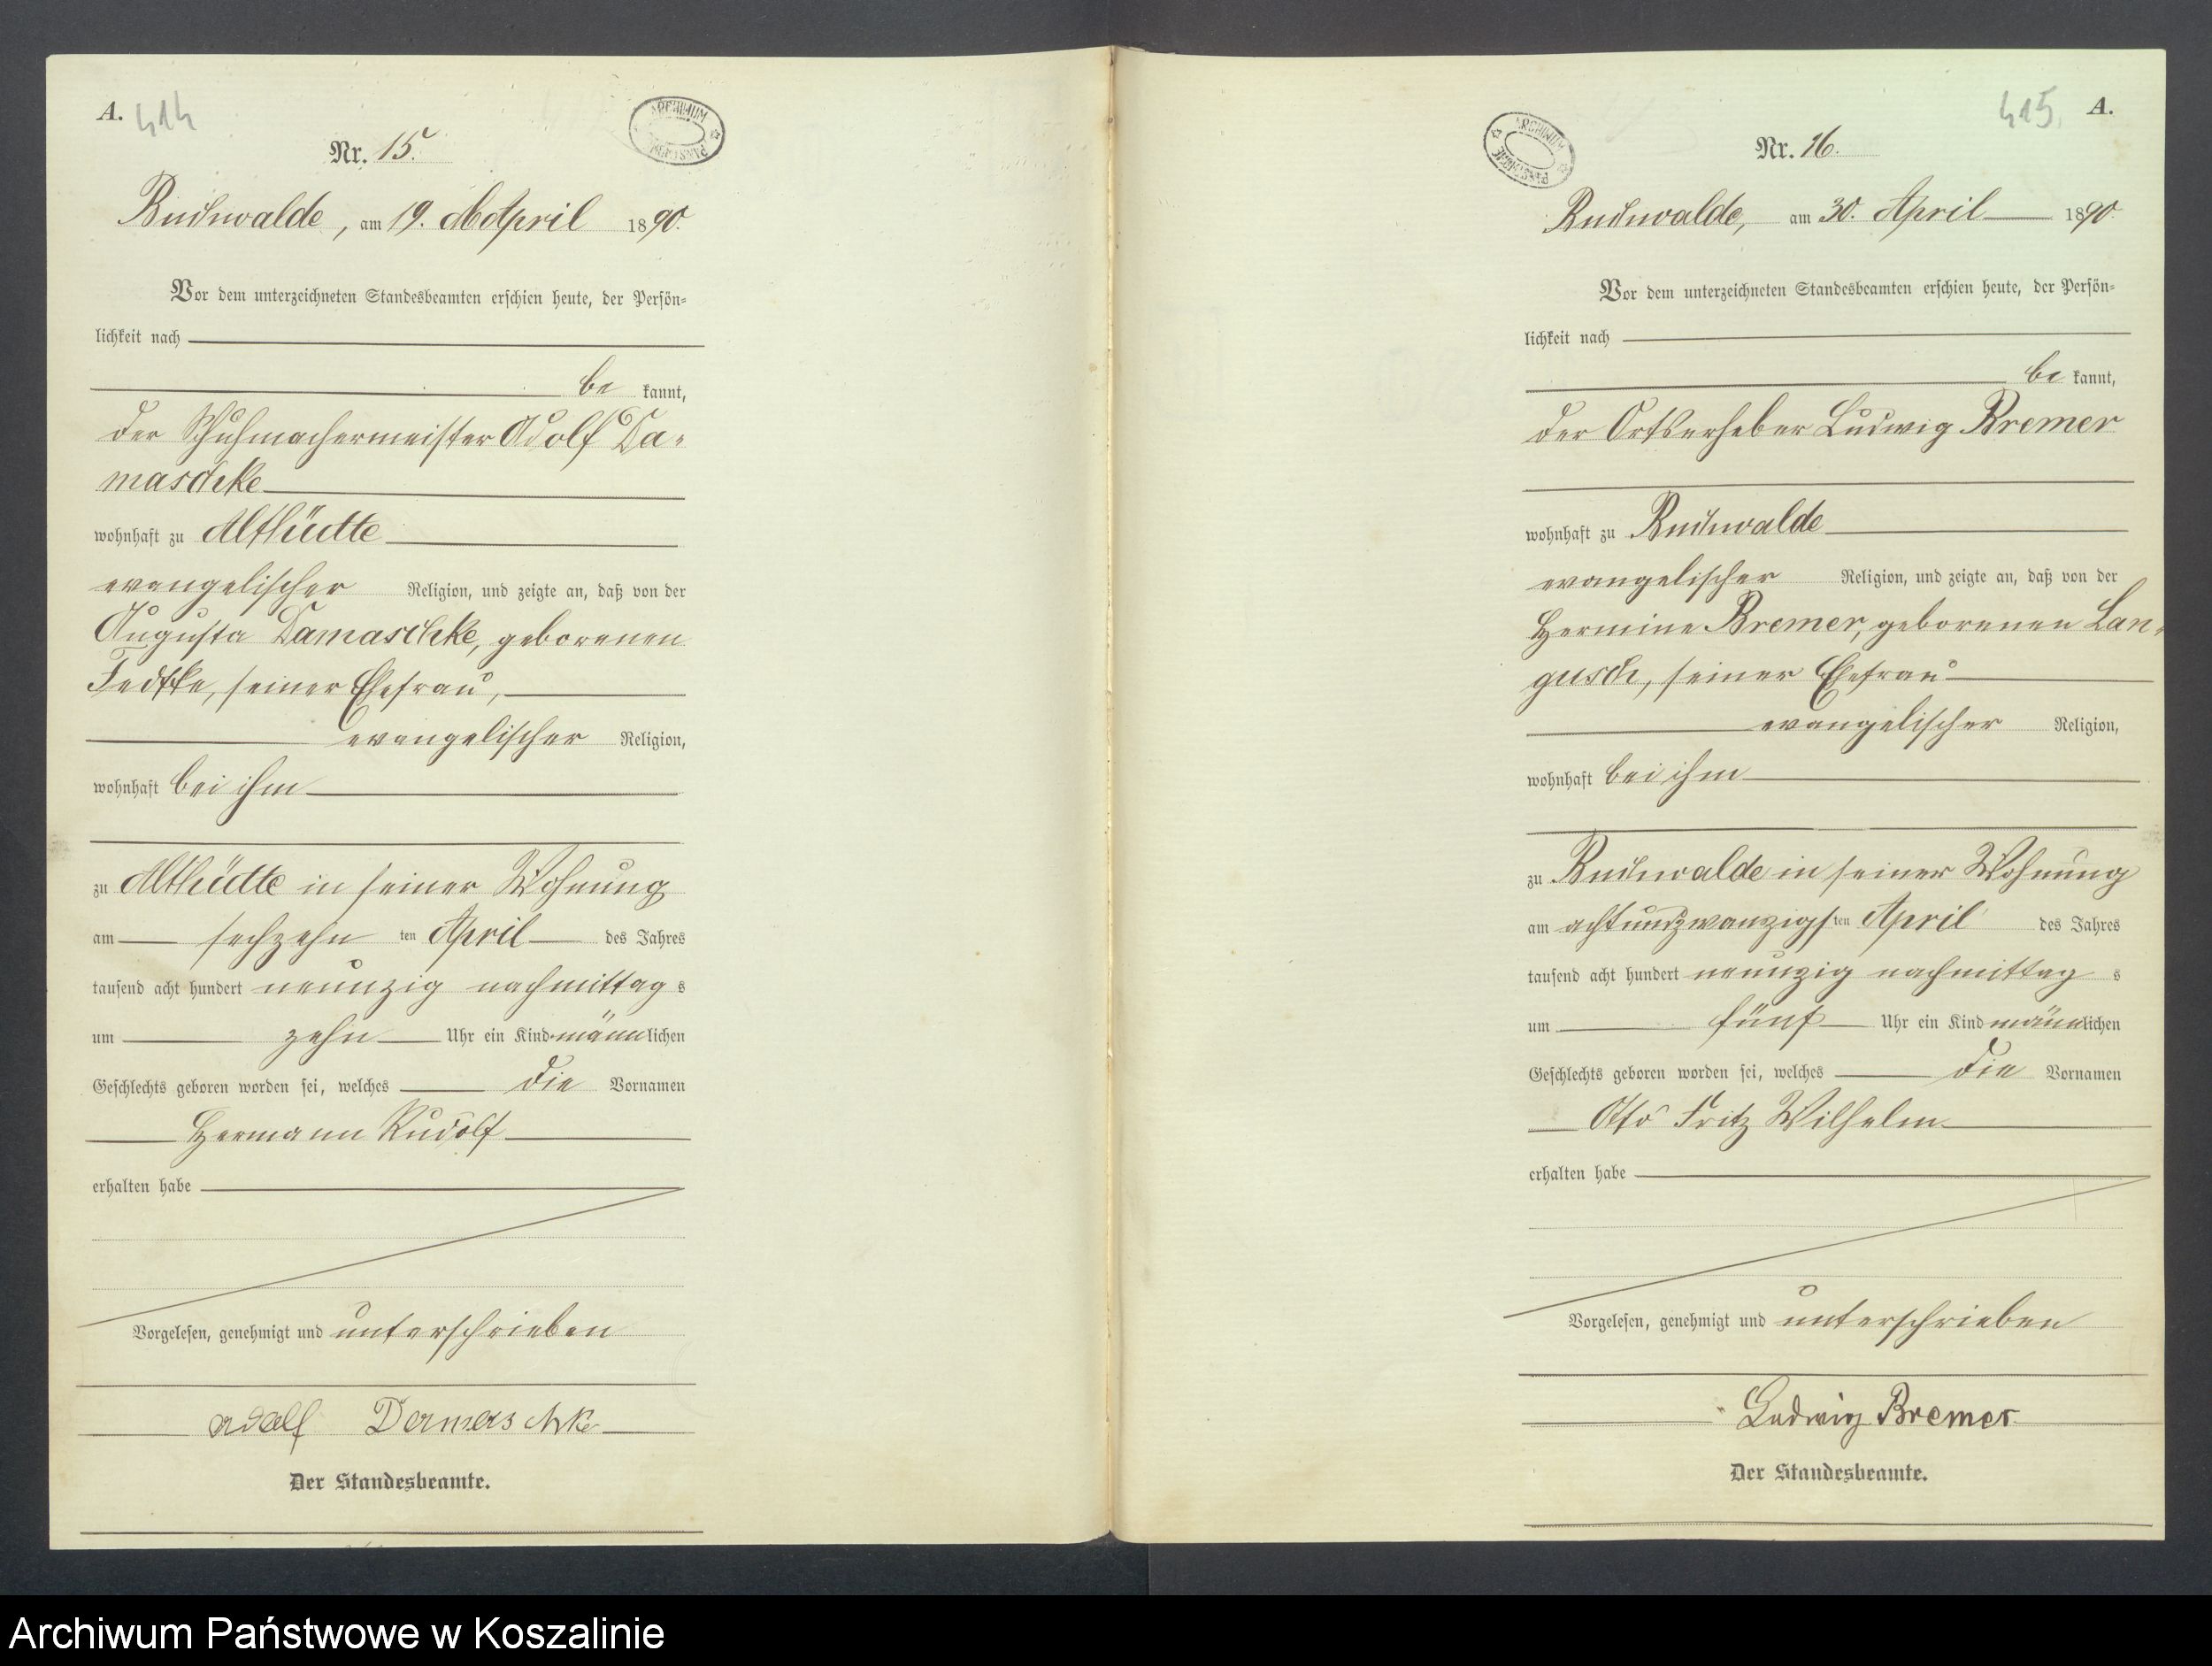 A.
414
ARCHIWUM PAŃSTWOWE
Nr. 15.
Buchwalde, am 19. April 1890.
Vor dem unterzeichneten Standesbeamten erschien heute, der Persön-
lichkeit nach
be kannt,
der Schuhmachermeister Adolf Da-
maschke
wohnhaft zu Althütte
evangelischer Religion, und zeigte an, daß von der
Augusta Damaschke, geborenen
seiner Ehefrau,
evangelischer Religion,
wohnhaft bei ihm
zu Althütte in seiner Wohnung
am sechzehn ten April des Jahres
tausend acht hundert neunzig nachmittag s
um zehn Uhr ein Kind männlichen
Geschlechts geboren worden sei, welches die Vornamen
Hermann Rudolf
erhalten habe
Vorgelesen, genehmigt und unterschrieben
Adolf Damaschke
Der Standesbeamte.
415.
A.
ARCHIWUM PAŃSTWOWE
Nr. 16.
Buchwalde, am 30. April 1890.
Vor dem unterzeichneten Standesbeamten erschien heute, der Persön-
lichkeit nach
be kannt,
der Ortserheber Ludwig Bremer
wohnhaft zu Buchwalde
evangelischer Religion, und zeigte an, daß von der
Hermine Bremer, geborenen Lan-
gusch, seiner Ehefrau
evangelischer Religion,
wohnhaft bei ihm
zu Buchwalde in seiner Wohnung
am achtundzwanzigsten April des Jahres
tausend acht hundert neunzig nachmittag s
um fünf Uhr ein Kind männlichen
Geschlechts geboren worden sei, welches die Vornamen
Otto Fritz Wilhelm
erhalten habe
Vorgelesen, genehmigt und unterschrieben
Ludwig Bremer
Der Standesbeamte.
Archiwum Państwowe w Koszalinie